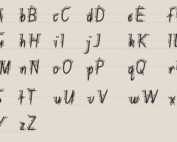 bB cC dD eE
hH iI jJ kK
M nN oO pP qQ
tT uU vV wW x
zZ